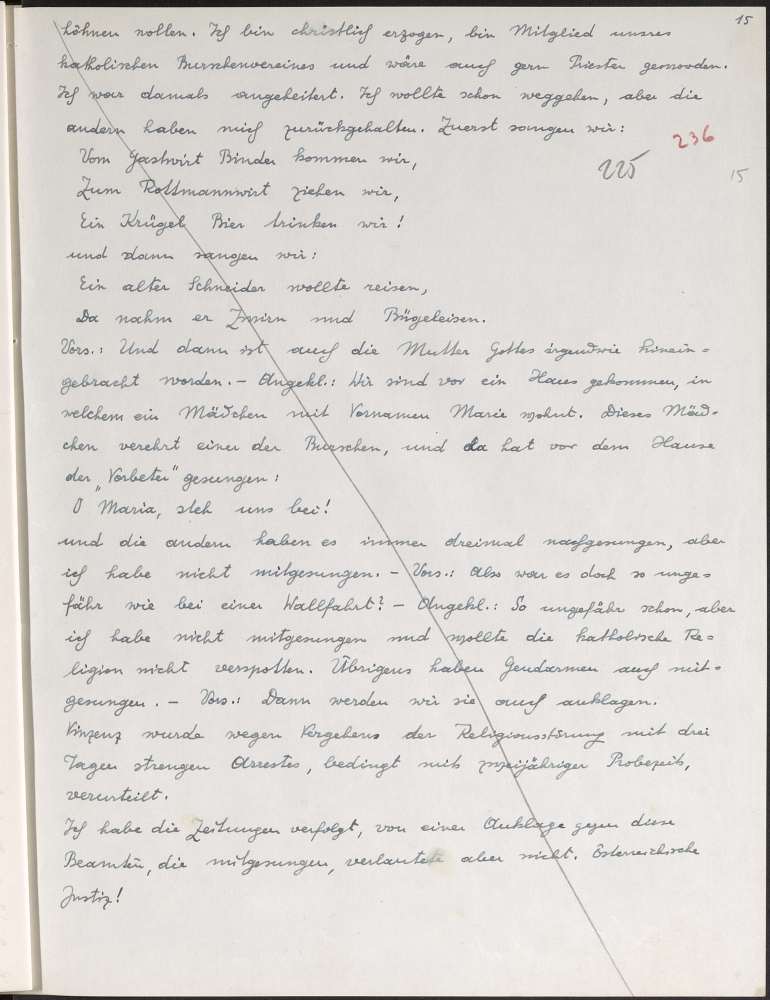 15
höhnen wollen. Ich bin christlich erzogen, bin Mitglied unsres
katholischen Burschenvereines und wäre auch gern Priester geworden.
Ich war damals angeheitert. Ich wollte schon weggehen, aber die
andern haben mich zurückgehalten. Zuerst sangen wir:
236
Vom Gastwirt Binder kommen wir,
225
15
Zum Rottmannwirt ziehen wir,
Ein Krügel Bier trinken wir!
und dann sangen wir:
Ein alter Schneider wollte reisen,
Da nahm er Zwirn und Bügeleisen.
Vors.: Und dann ist auch die Mutter Gottes irgendwie hinein=
gebracht worden. – Angekl.: Wir sind vor ein Haus gekommen, in
welchem ein Mädchen mit Vornamen Marie wohnt. Dieses Mäd=
chen verehrt einer der Burschen, und da hat vor dem Hause
der „Vorbeter" gesungen:
O Maria, steh uns bei!
und die andern haben es immer dreimal nachgesungen, aber
ich habe nicht mitgesungen. – Vors.: Also war es doch so unge=
fähr wie bei einer Wallfahrt? – Angekl.: So ungefähr schon, aber
ich habe nicht mitgesungen und wollte die katholische Re=
ligion nicht verspotten. Übrigens haben Gendarmen auch mit=
gesungen. – Vors.: Dann werden wir sie auch anklagen.
Vinzenz wurde wegen Vergehens der Religionsstörung mit drei
Tagen strengen Arrestes, bedingt mit zweijähriger Probezeit,
verurteilt.
Ich habe die Zeitungen verfolgt, von einer Anklage gegen diese
Beamten, die mitgesungen, verlautete aber nicht. Österreichische
Justiz!